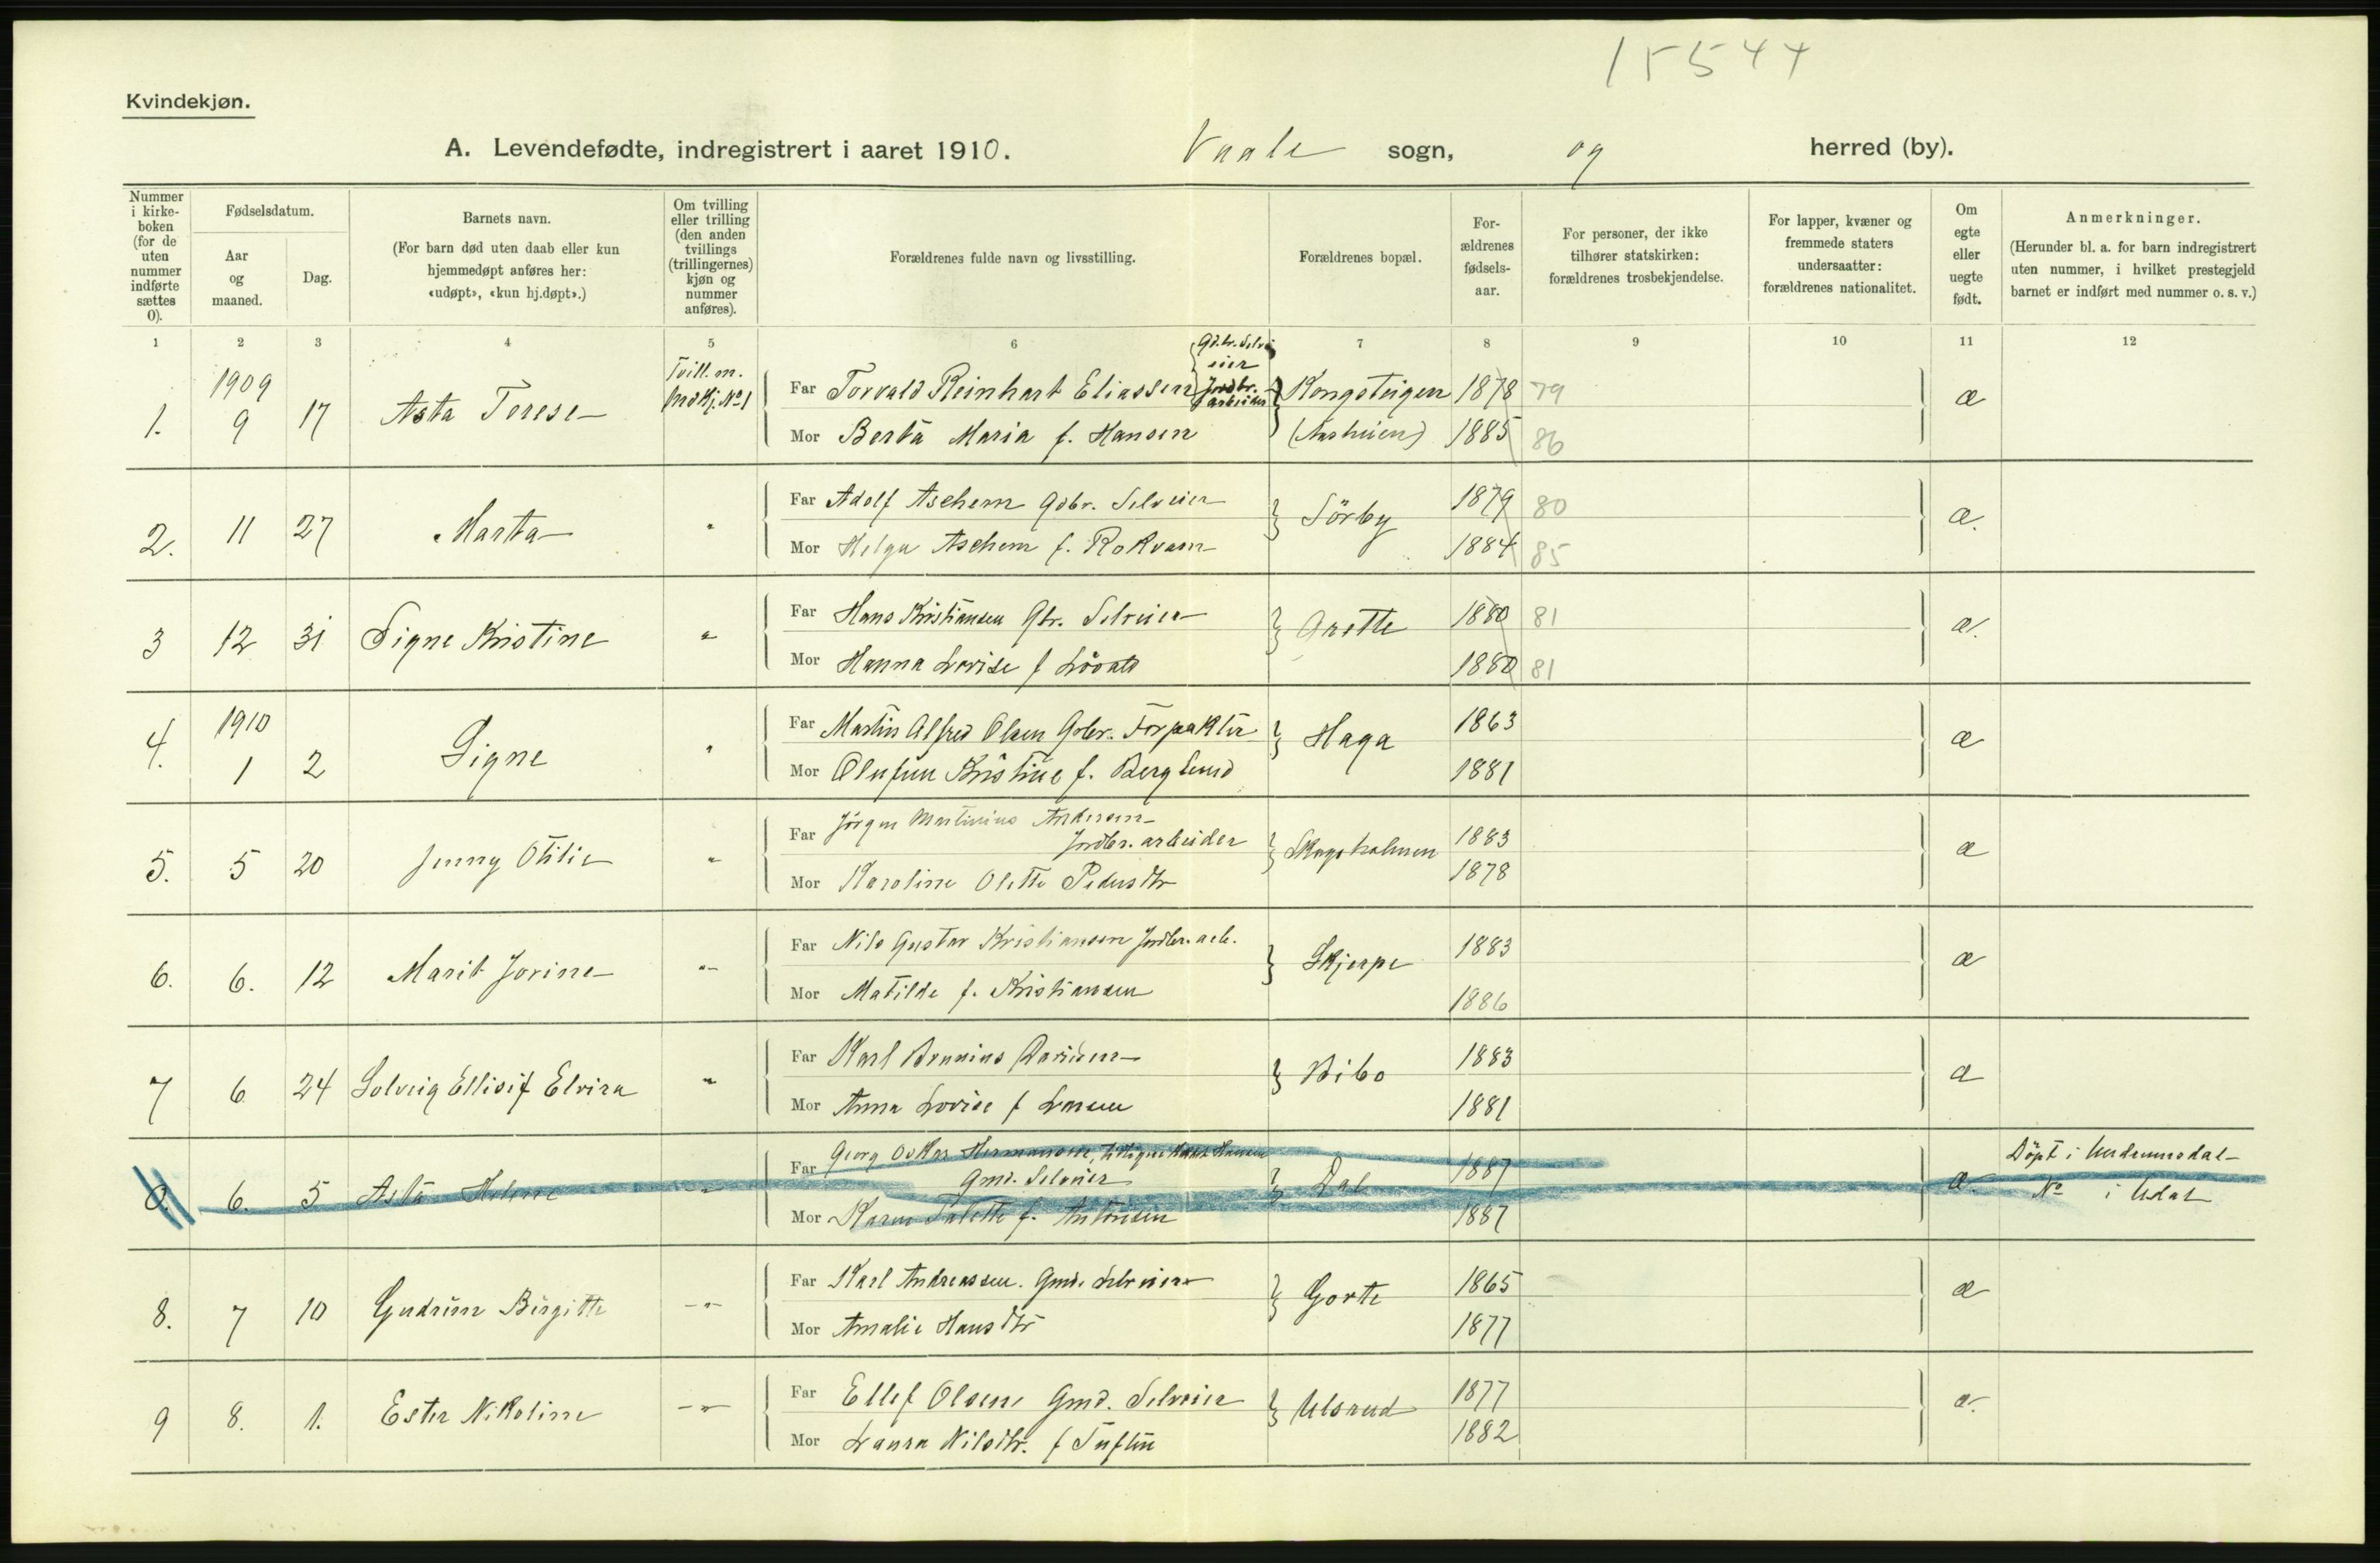 15544
Kvindekjøn.
A. Levendefødte, indregistrert i aaret 1910. Vaale sogn, og herred (by).
Nummer i kirke-boken (for de uten nummer indførte sættes 0).
Fødselsdatum.
Aar og maaned.
Dag.
Barnets navn.
(For barn død uten daab eller kun hjemmedøpt anføres her: «udøpt», «kun hj.døpt».)
Om tvilling eller trilling (den anden tvillings (trillingernes) kjøn og nummer anføres).
Forældrenes fulde navn og livsstilling.
Forældrenes bopæl.
For-ældrenes fødsels-aar.
For personer, der ikke tilhører statskirken: forældrenes trosbekjendelse.
For lapper, kvæner og fremmede staters undersaatter: forældrenes nationalitet.
Om egte eller uegte født.
Anmerkninger.
(Herunder bl. a. for barn indregistrert uten nummer, i hvilket prestegjeld barnet er indført med nummer o. s. v.)
1 2 3 4 5 6 7 8 9 10 11 12
1. 1909 9 17 Asta Terese Tvill. m. No 1
Far Torvald Reinhart Eliassen Gd.br. Selveier Jordbr. arbeider Kongsteigen 1878 79 æ
Mor Berta Maria f. Hansen 1885 86
2. 11 27 Marta "
Far Adolf Aschem Gdbr. Selveier Sörby 1879 80 æ.
Mor Helga Aschem f. Rokvam 1884 85
3 12 31 Signe Kristine "
Far Hans Kristiansen Gbr. Selveier Grette 1880 81 æ.
Mor Hanna Lovise f 1880 81
4. 1910 1 2 Signe "
Far Martin Alfred Olsen Gdbr. Forpakter Haga 1863 æ
Mor Olufine Kristine f. Berglund 1881
5. 5 20 Jenny Otilie "
Far Jörgen Martinius Andersen
Jordbr. arbeider Skogsholmen 1883 æ
Mor Karoline Olette Pedersdtr 1878
6. 6. 12 Marit Jorine "
Far Nils Gustav Kristiansen Jordbr. arb. Skjerpe 1883 æ
Mor Matilde f. Kristiansen 1886
7 6 24 Solveig Ellisif Elvira "
Far Karl Brunius Davidsen Bibo 1883 æ
Mor Anna Lovise f Larsen 1881
0. 6. 5 Asta Helene "
Far Georg Oskar Hermansen, Hansen
Gmd. Selveier Dal 1887 æ. Döpt i Undrumsdal
Mor Karen Talette f. Antonsen 1887 No i Udal
8. 7 10 Gudrun Birgitte "
Far Karl Andreassen. Gmd. Selveier Gorte 1865 æ
Mor Amalie Hansdtr 1877
9 8. 1. Ester Nikoline "
Far Ellef Olsen Gmd. Selveier Ulsrud 1877 æ.
Mor Laura Nilsdtr. f Tuften 1882